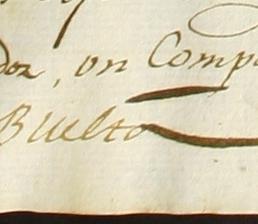 dor, un Comp
Buelto